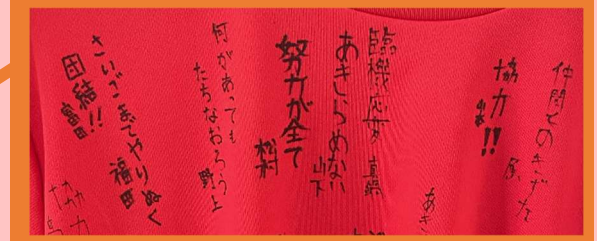 仲間とのきずな
協力!!
臨機応変 真鍋
あきらめない
山下
努力が全て
松村
何があっても
たちなおろう
野上
さいごまでやりぬく
福田
団結!!
富田
あき
協力